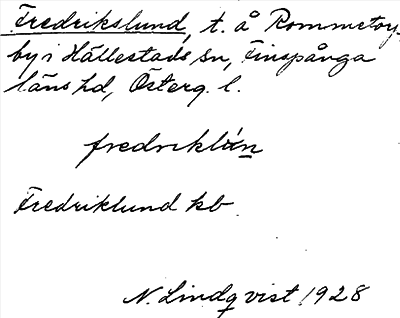 Fredrikslund, t. å Rommetorp-
by i Hällestads sn, Finspånga
läns hd, Österg. l.
fredriklún
Fredriklund kb
N. Lindqvist 1928